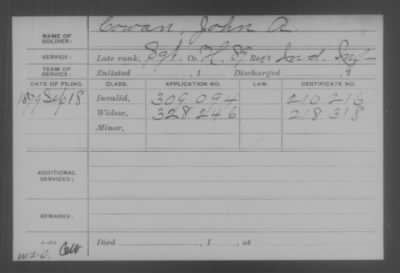 NAME OF SOLDIER: Cowan, John A.
SERVICE: Late rank, Sgt. Co. H, 87 Reg't Ind. Inf
TERM OF SERVICE: Enlisted , 1 Discharged , 1
DATE OF FILING. CLASS. APPLICATION NO. LAW. CERTIFICATE NO.
1879 Sep 18 Invalid, 309 094 210 216
Widow, 328 246 218 318
Minor,
ADDITIONAL SERVICES:
REMARKS:
Died , 1 , at